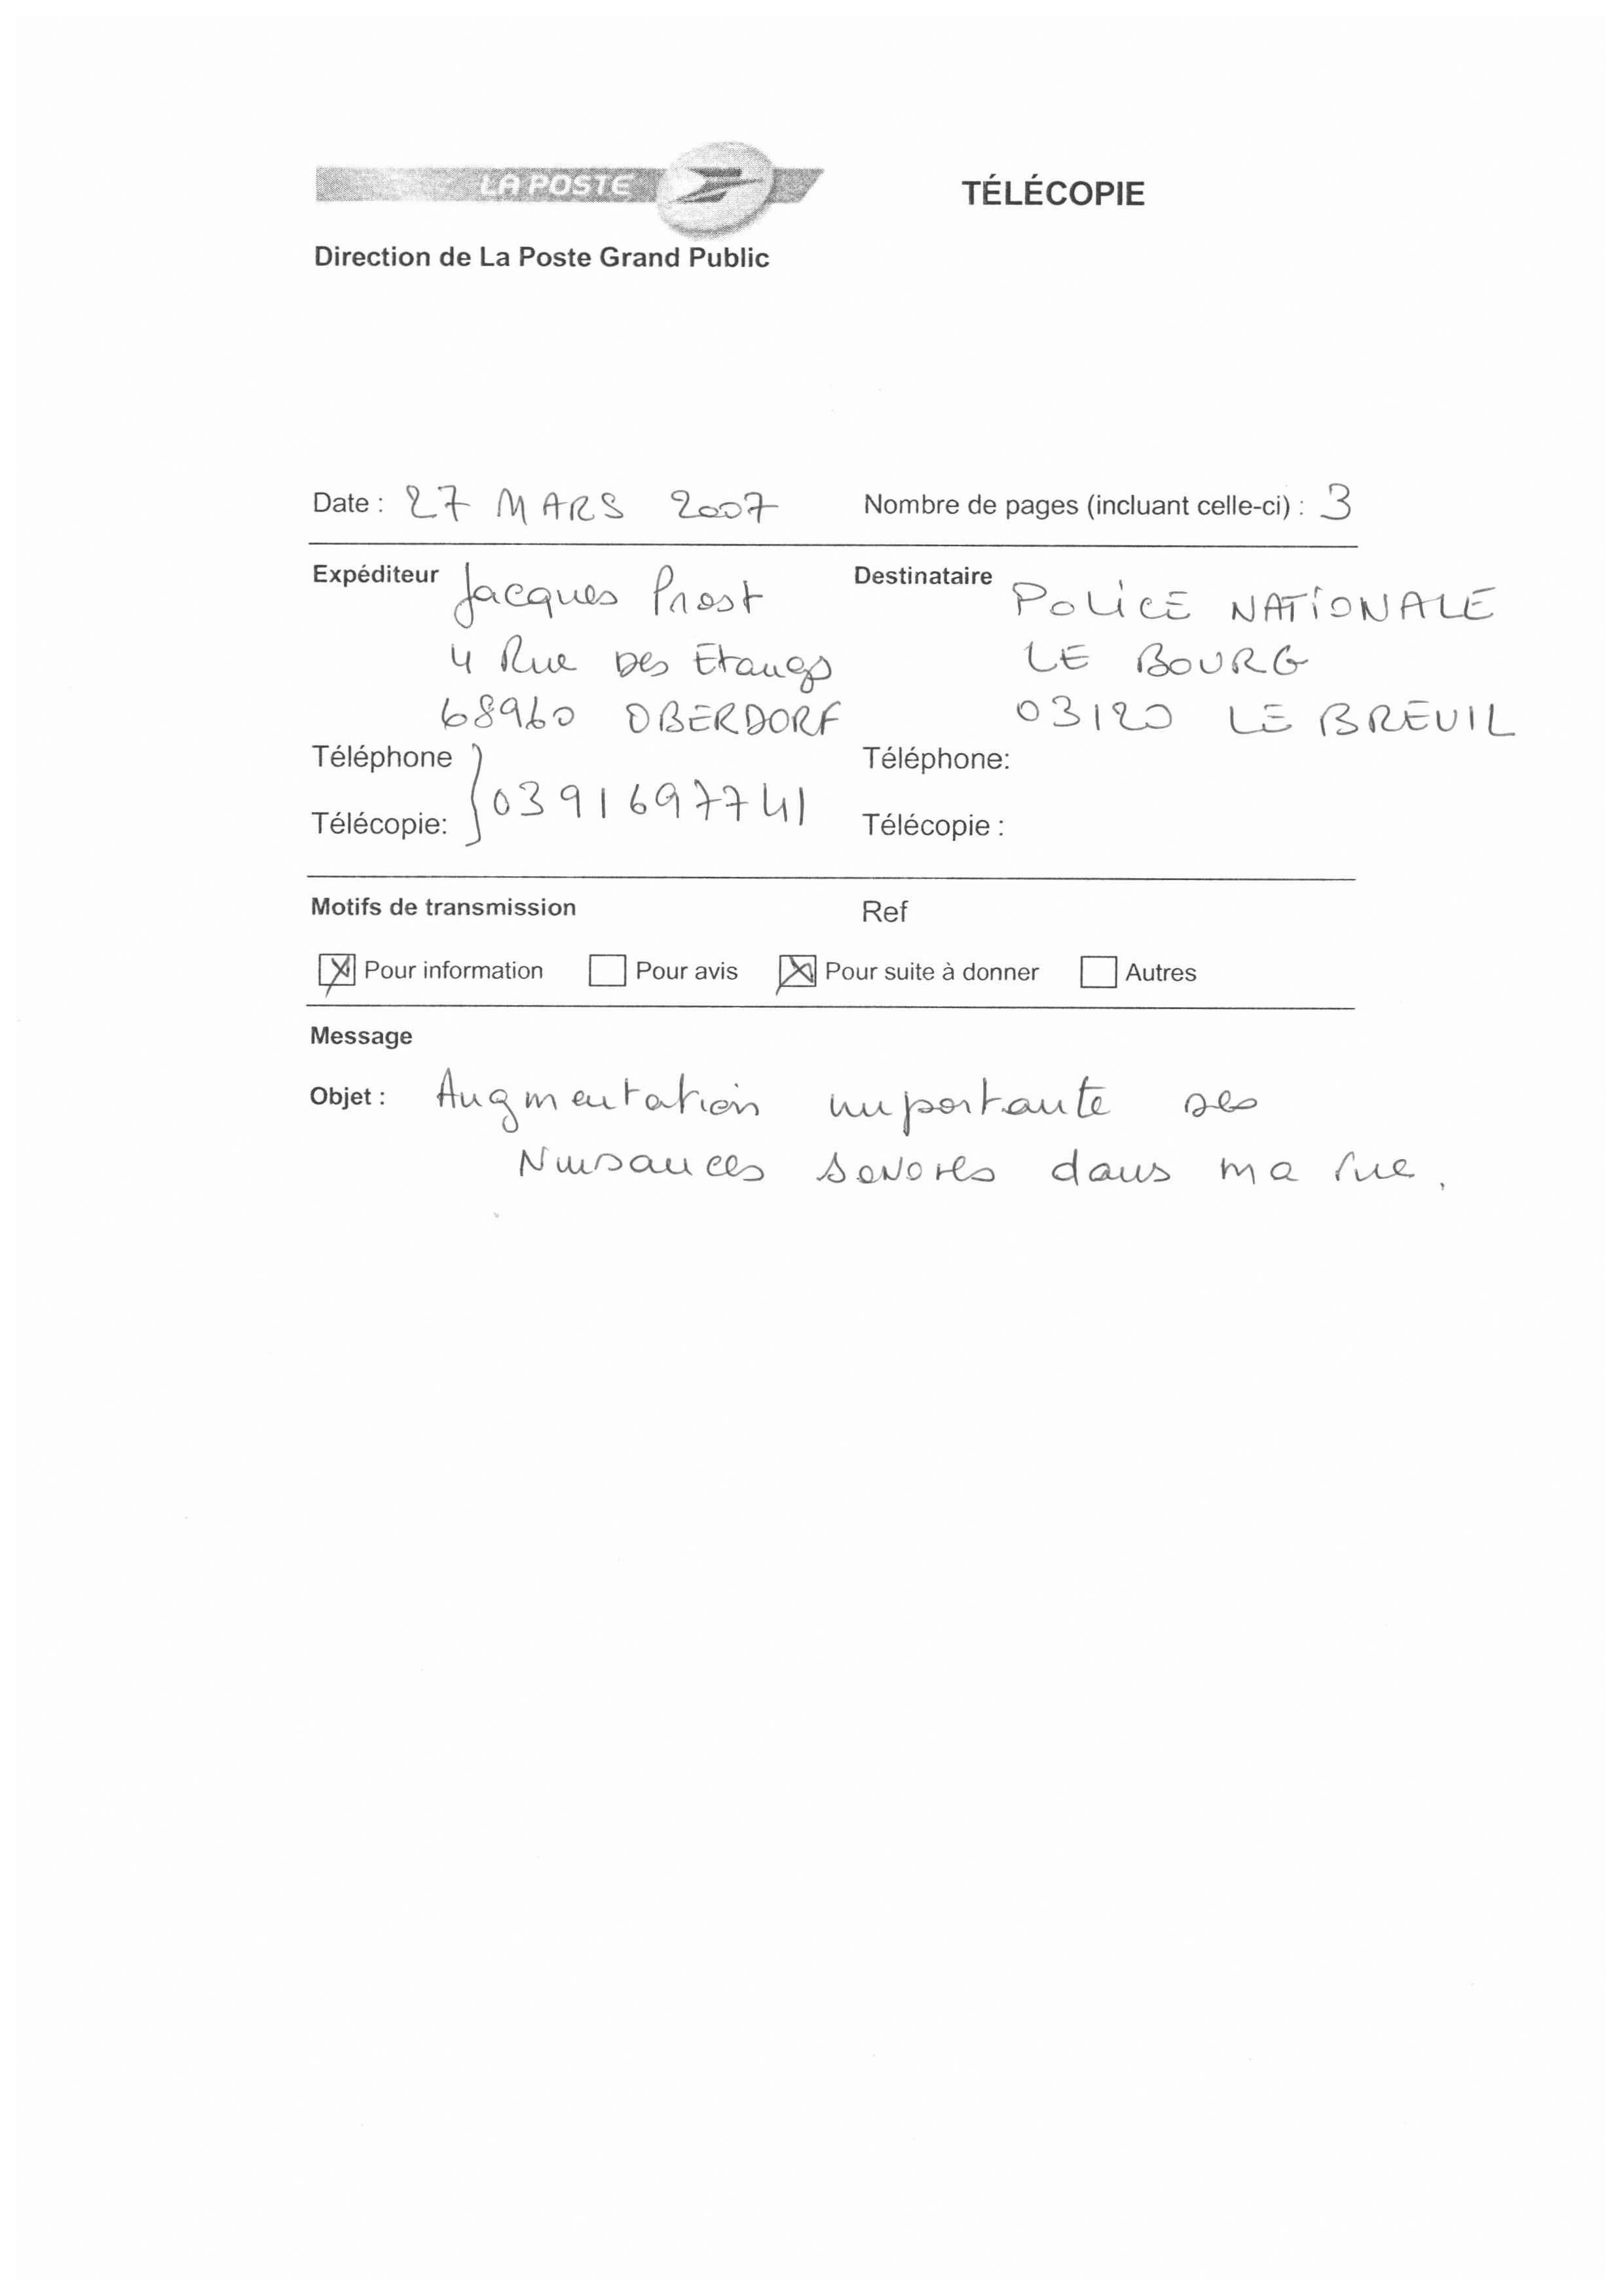 LA POSTE
TÉLÉCOPIE
Direction de La Poste Grand Public
Date : 27 MARS 2007 Nombre de pages (incluant celle-ci) : 3
Expéditeur Jacques Prost Destinataire POLICE NATIONALE
4 Rue Des Etangs LE BOURG
68960 OBERDORF 03120 LE BREUIL
Téléphone Téléphone:
0391697741
Télécopie: Télécopie :
Motifs de transmission Ref
Pour information Pour avis Pour suite à donner Autres
Message
Objet : Augmentation importante des
Nuisances sonores dans ma rue.